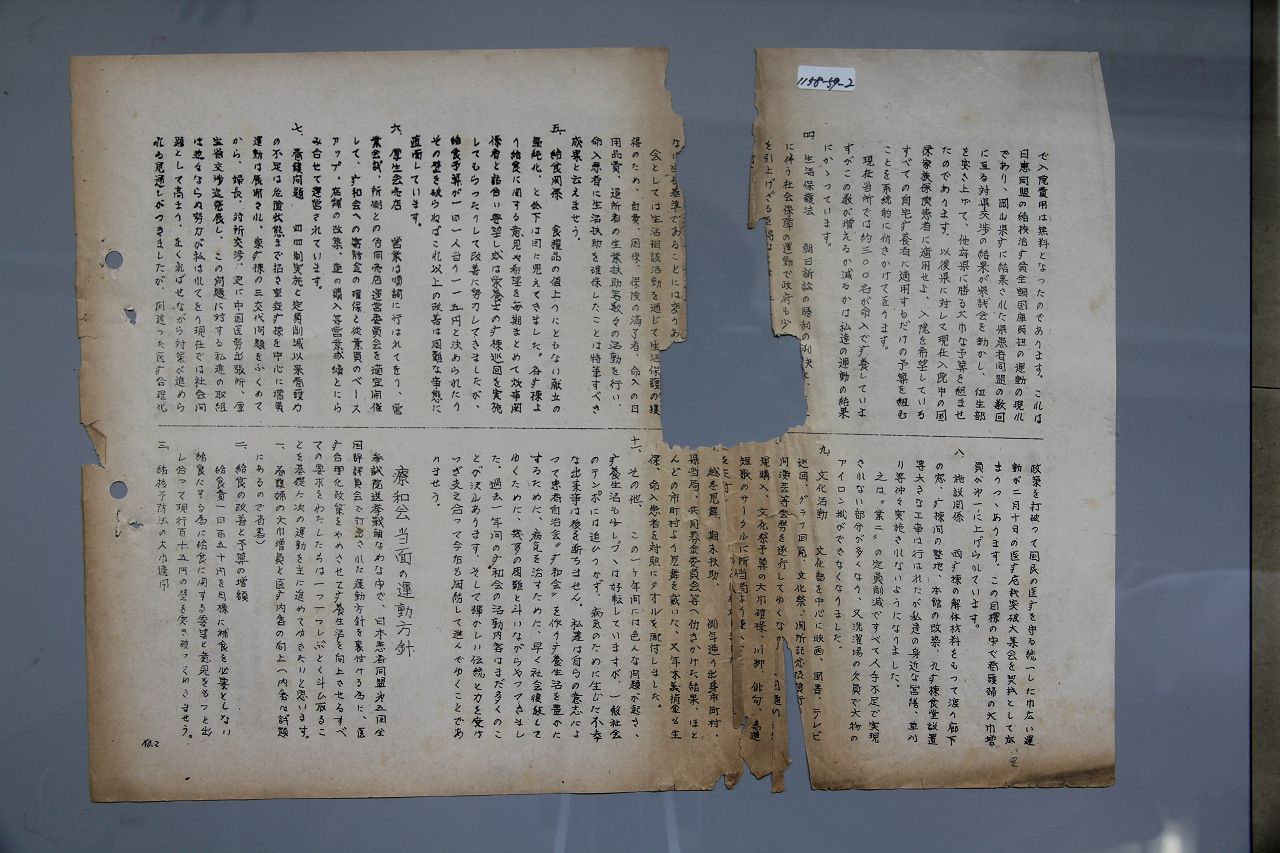 1158-59-2
で入院費用は無料となったのであります。これは
日患同盟の結核治療費全額国庫負担の運動の現れ
であり、岡山県に結集された県患者同盟の数回
に亘る対県交渉の結果が県議会を動かし、衛生部
を突き上げて、他府県に勝る大巾な予算を組ませ
たのであります。以後県に対して現在入院中の国
保家族保険患者に適用せよ、入院を希望している
すべての自宅療養者に適用するだけの予算を組む
ことを系統的に仂きかけてをります。
現在当所では約三〇〇名が命入で療養していま
すがこの数が増えるか減るかは私達の運動の結果
にかゝっています。
四 生活保護法 朝日訴訟の勝利の判決と
に伴う社会保障の運動で政府も少
を引上げざる
ない
基準であることには変りあ
会としては生活相談活動を通じて生活保護の獲
得のため、自費、国保、保険の満了者、命入の日
用品費、退所者の生業扶助等数々の活動を行い、
命入患者に生活扶助を確保したことは特筆すべき
成果と云えませう。
五 給食関係 食糧品の値上りにともない献立の
単純化、と低下は目に見えてきました。各病棟よ
り給食に関する意見や希望を毎期まとめて炊事関
係者と話合い要望し或は栄養士の病棟巡回を実施
してもらったりして改善に努力してきましたが、
給食予算が一日一人当り一一五円と決められたり
その壁を破らねばこれ以上の改善は困難な事態に
直面しています。
六 厚生会売店 営業は順調に行はれてをり、営
業会議、所側との合同売店運営委員会を適宜開催
して、療和会への寄附金の確保と従業員のベース
アップ、店舗の改築、車の購入等営業成績とにら
み合せて運営されています。
七 看護問題 四四制実施と定員削減以来看護力
の不足は危険状態まで招き重症病棟を中心に増員
運動は展開され、東病棟の三交代問題をふくめて
から、婦長、対所交渉、更に中国医務出張所、厚
生省交渉迄発展し、この問題に対する私達の取組
は並々ならぬ努力が払はれてをり現在では社会問
題として高まり、をくればせながら対策が進めら
れる見通しがつきましたが、間違った医療合理化
政策を打破って国民の医療を守る統一した巾広い運
動が二月十日の医療危機突破大集会を契機として広
まりつゝあります。この目標の中で看護婦の大巾増
員が第一に上げられています。
八 施設関係 西病棟の解体材料をもって渡り廊下
の窓、病棟間の整地、本館の改築、九病棟食堂設置
等大きな工事は行はれたが私達の身近な営繕、草刈
り等仲々実施されないようになりました。
之は、"業二"の定員削減ですべて人手不足で実現
されない部分が多くなり、又洗濯場の欠員で大物の
アイロン掛ができなくなりました。
九 文化活動 文化部を中心に映画、園芸、テレビ
巡回、グラフ回覧、文化祭、開所記念
同演芸等会務を遂行してゆくなか
規購入、文化祭予算の大巾確保、川柳、俳句、
短歌のサークルに所当局より
越冬見舞、期末扶助、 例年通り出身市町村、
県当局、共同募金委員会等へ仂きかけた結果、ほと
んどの市町村より見舞を戴いた、又年末義損金も生
保、命入患者を対照にタオルを配付しました。
十一 その他、 この一年間には色んな問題が起き、
療養生活も少しづゝは好転していますが、一般社会
のテンポには追ひつかず、病気のために生じた不幸
な出来事は後を断ちません。私達は自らの意志によ
って患者自治会"療和会"を作り療養生活を豊かに
するために、病気を治すために、早く社会復帰して
ゆくために、幾多の困難と斗いながらやってきまし
た、過去一年間の療和会の活動内容はまだ多くのこ
とが沢山あります。そして輝かしい伝統と力を受け
つぎ支え合って今后も団結して進んでゆくことであ
りませう。
療和会当面の運動方針
参議院選挙戦
なかで、日本患者同盟第五回全
国評議員会で打出された運動方針を裏付ける為に、医
療合理化政策をやめさせて療養生活を向上させるすべ
ての要求をわたしたちは一つ一つしぶとく斗ひ取るこ
とを基礎に次の運動を主に進めてゆきたいと思います。
一、看護婦の大巾増員と医療内容の向上（内容は試題
にあるので省略）
二、給食の改善と予算の増額
給食費一日百五十円を目標に補食を必要としない
給食にする為に給食に関する要望と意見をもっと出
し合って現行百十五円の壁を突き破ってゆきませう。
三、結核予防法の大巾適用
No.2